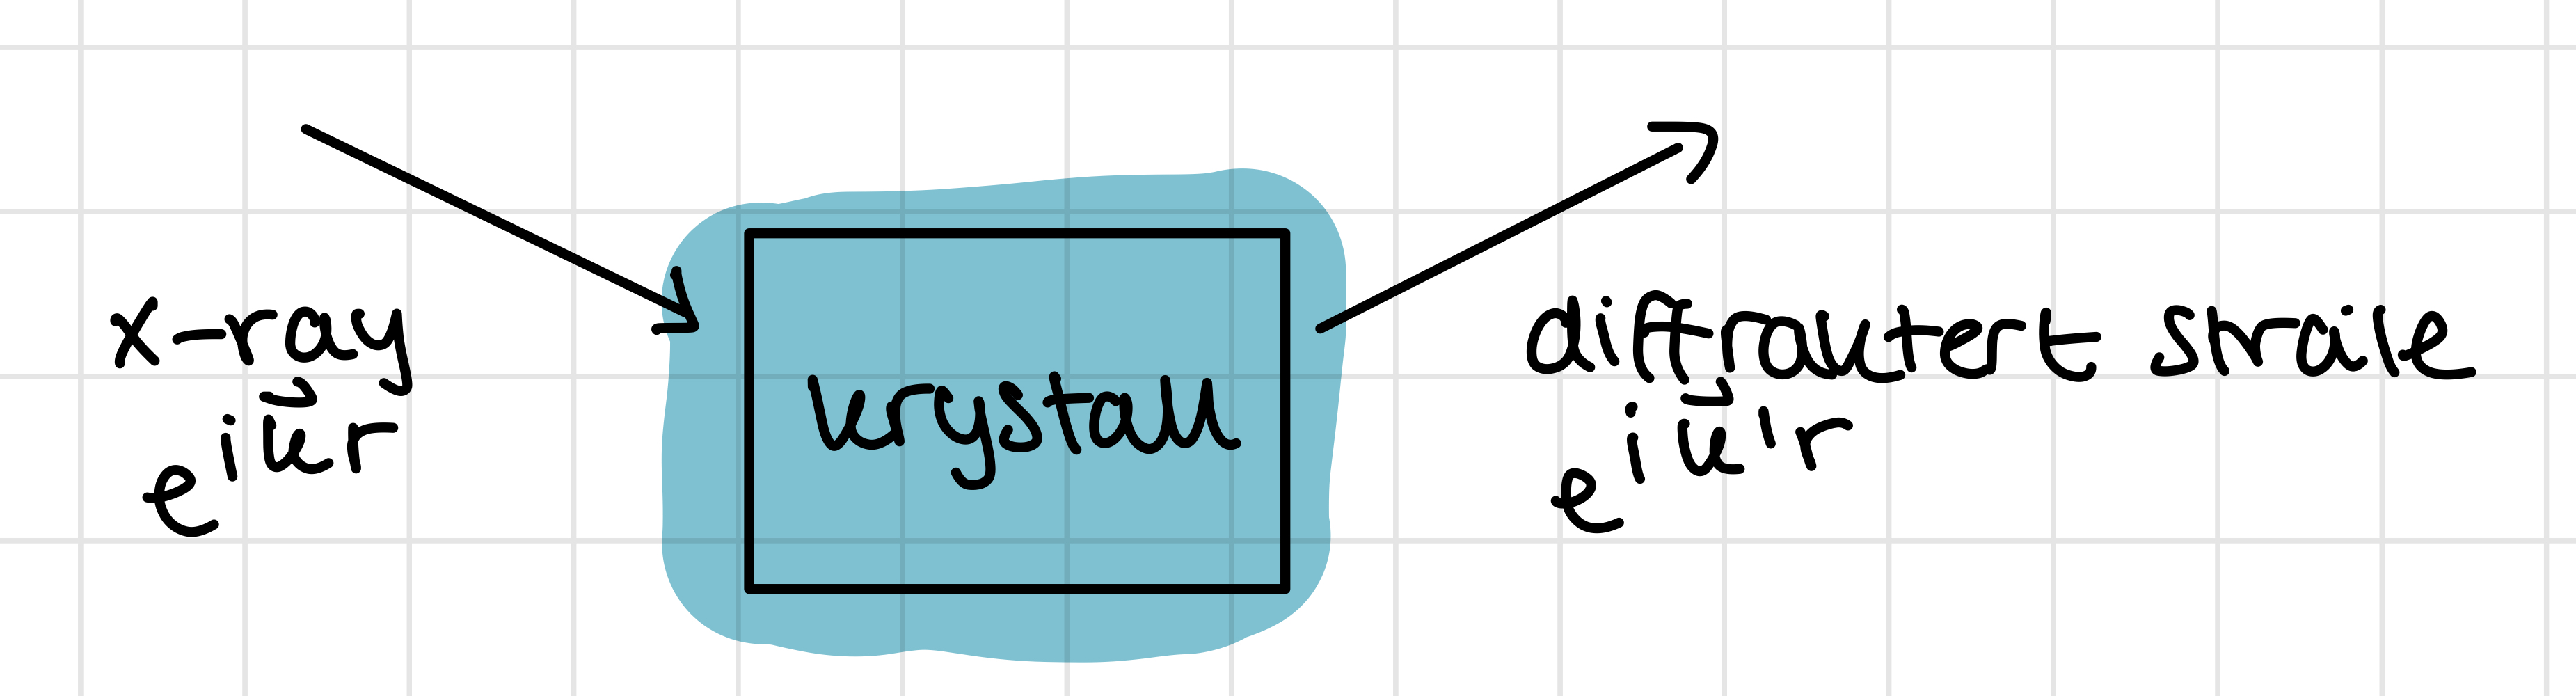 x-ray
e^{i\vec{k}r}
krystall
diffraktert stråle
e^{i\vec{k}'r}